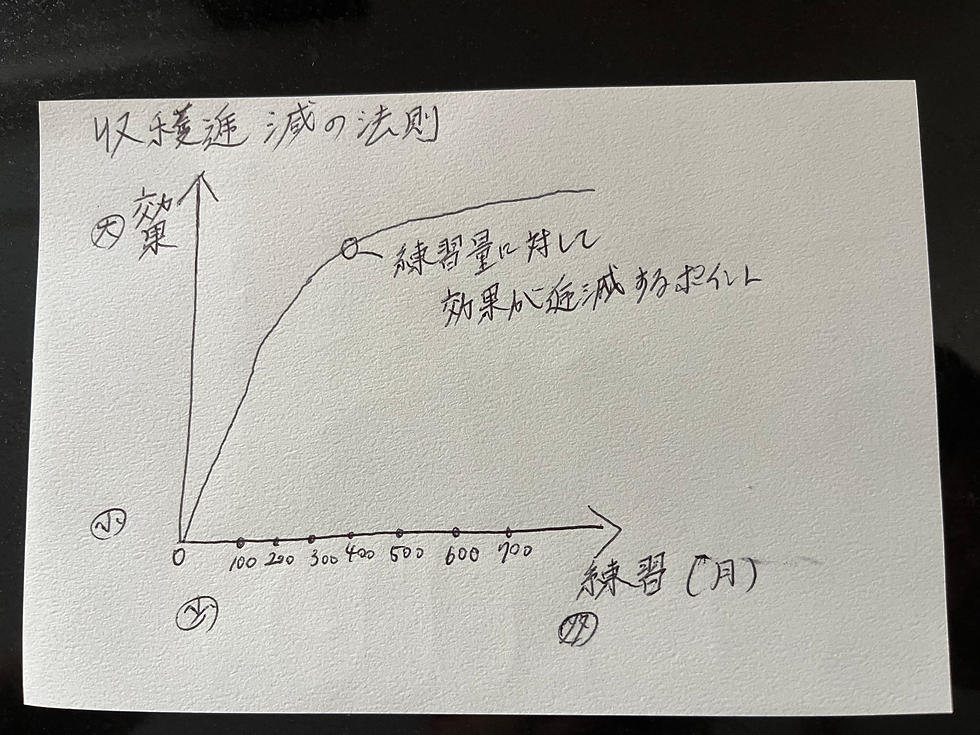 収穫逓減の法則
効果
大
練習量に対して
効果が逓減するポイント
小
0 100 200 300 400 500 600 700
練習(月)
少
多